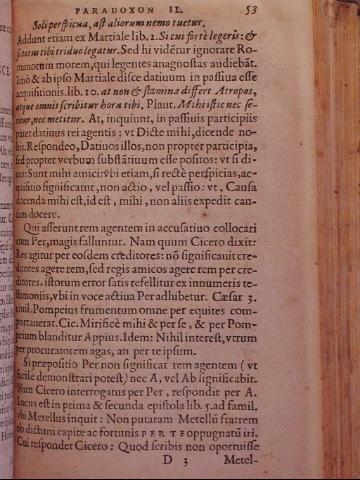 PARADOXON II. 53
Soli perspicua, ast aliorum nemo tuetur.
Addunt etiam ex Martiale lib. 2. Si cui fortè legeris: &
tibi triduo legatur. Sed hi vidẽtur ignorare Ro-
manorum morem, qui legentes anagnostas audiebãt.
Imò & ab ipso Martiale disce datiuum in passiua esse
acquisitionis. lib. 10. at non & stamina differt Atropos,
atque omnis scribitur hora tibi. Plaut. Mihi istic nec se-
ritur, nec metitur. At, inquiunt, in passiuis participiis
patet datiuus rei agentis: vt Dicte mihi, dicende no-
bis. Respondeo, Datiuos illos, non propter participia,
sed propter verbum substãtiuum esse positos: vt si di-
cas: Sunt mihi amici: vbi etiam, si rectè perspicias, ac-
quisitio significatur, non actio, vel passio: vt, Causa
docenda mihi est, id est, mihi, non aliis expedit cau-
sam docere.
Qui asserunt rem agentem in accusatiuo collocari
cum Per, magis falluntur. Nam quum Cicero dixit:
Res agitur per eosdem creditores: nõ significauit cre-
ditores agere rem, sed regis amicos agere rem per cre-
ditores. istorum error satis refellitur ex innumeris te-
stimoniis, vbi in voce actiua Per adhibetur. Cæsar 3.
ciuil. Pompeius frumentum omne per equites com-
portauerat. Cic. Mirificè mihi & per se, & per Pom-
peium blanditur Appius. Idem: Nihil interest, vtrum
per procuratorem agas, an per te ipsum.
Si præpositio Per non significat rem agentem (vt
facile demonstrari potest) nec A, vel Ab significabit.
Nam Cicero interrogatus per Per, respondit per A.
Locus est in prima & secunda epistola lib. 5. ad famil.
vbi Metellus inquit: Non putaram Metellũ fratrem
ob dictum capite ac fortunis PER TE oppugnatũ iri.
Cui respondet Cicero: Quod scribis non oportuisse
D 3 Metel-